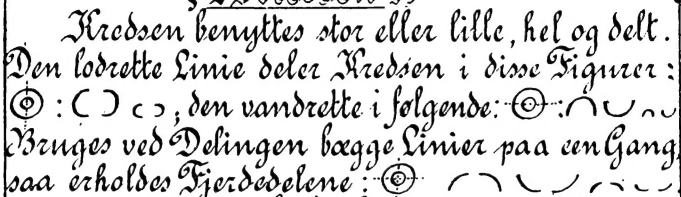 Kredsen benyttes stor eller lille, hel og delt.
Den lodrette Linie deler Kredsen i disse Figurer:
: ( ) ( ) ; den vandrette i følgende: :
Bruges ved Delingen bægge Linier paa een Gang,
saa erholdes Fjerdedelene: